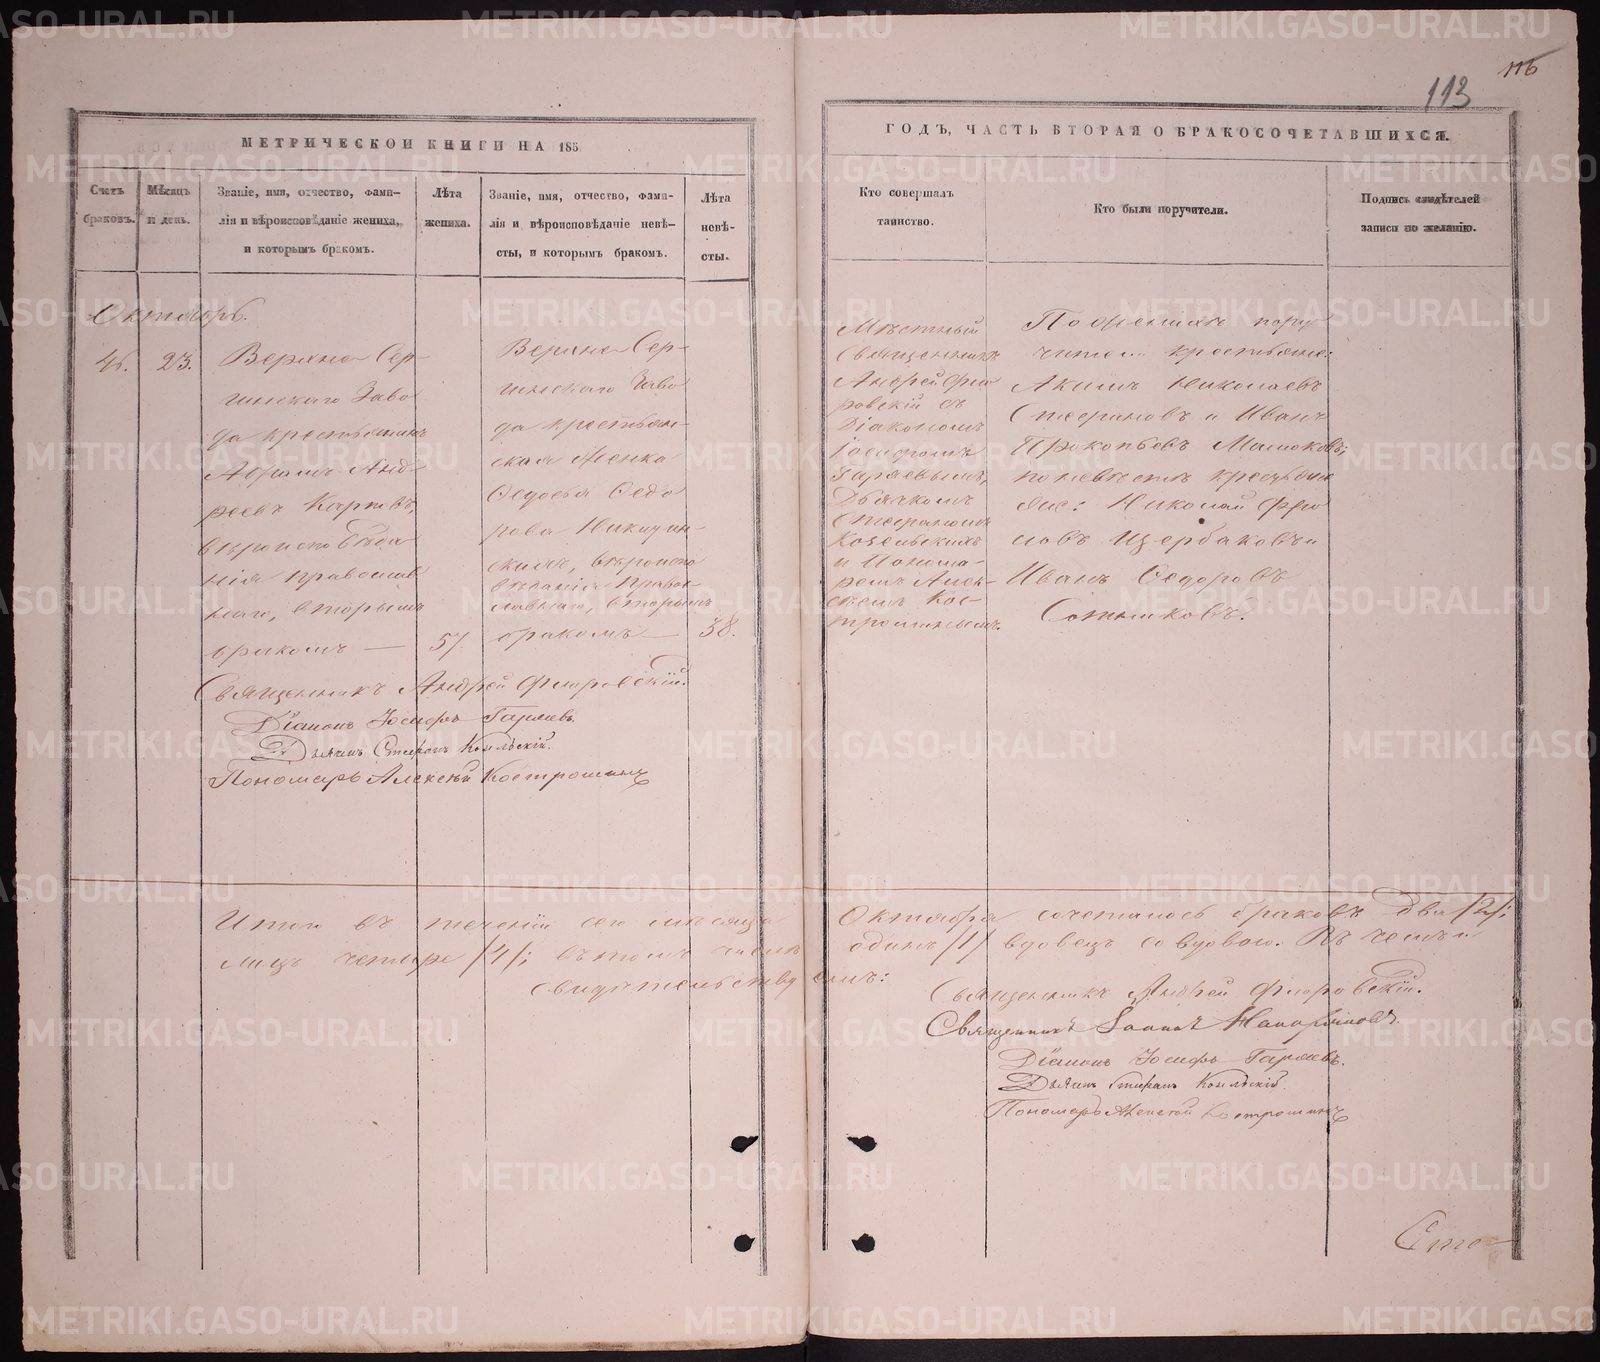 116
113
МЕТРИЧЕСКОЙ КНИГИ НА 185
ГОДЪ, ЧАСТЬ ВТОРАЯ О БРАКОСОЧЕТАВШИХСЯ.
Счетъ браковъ.
Мѣсяцъ и день.
Званіе, имя, отчество, фами-
лія и вѣроисповѣданіе жениха,
и которымъ бракомъ.
Лѣта
жениха.
Званіе, имя, отчество, фами-
лія и вѣроисповѣданіе невѣ-
сты, и которымъ бракомъ.
Лѣта
невѣ-
сты.
Кто совершалъ
таинство.
Кто были поручители.
Подпись свидѣтелей
записи по желанію.
Октябрь.
46.
23.
Верхне Сер-
гинскаго Заво
да крестьянинъ
Абрамъ Анд-
реевъ Карповъ,
вѣроисповѣда
нія православ
наго, вторымъ
бракомъ —
57.
Верхне Сер-
гинскаго Заво
да крестьян-
ская женка
Ѳедосья Ѳедо
рова Никитин-
ская, вѣроиспо
вѣданія Правос-
лавнаго, вторымъ
бракомъ —
38.
Мѣстный
Священникъ
Андрей Фло
ровскій съ
Діакономъ
Іосифомъ
Гаряевымъ,
Дьячкомъ
Стефаномъ
Козельскимъ
и Понома-
ремъ Алек-
сѣемъ Кос-
трошинымъ.
По женихѣ пору
чители крестьяне:
Акимъ Николаевъ
Стефановъ и Иванъ
Прокопьевъ Машоковъ;
по невѣстѣ крестьяне
Николай Фро
ловъ Щербаковъ и
Иванъ Ѳедоровъ
Сотниковъ.
Священникъ Андрей Флоровскій.
Діаконъ Іосифъ Гаряевъ.
Дьячекъ Стефанъ Козельскій.
Пономарь Алексѣй Кострошинъ
Итого въ теченіи сего мѣсяца
Октября сочеталось браковъ два /2/;
лицъ четыре /4/; въ томъ числѣ
одинъ /1/ вдовецъ со вдовою. Въ чемъ и
свидѣтельствуемъ:
Священникъ Андрей Флоровскій.
Священникъ Іоаннъ
Діаконъ Іосифъ Гаряевъ.
Дьячекъ Стефанъ Козельскій.
Пономарь Алексѣй Кострошинъ
METRIKI.GASO-URAL.RU